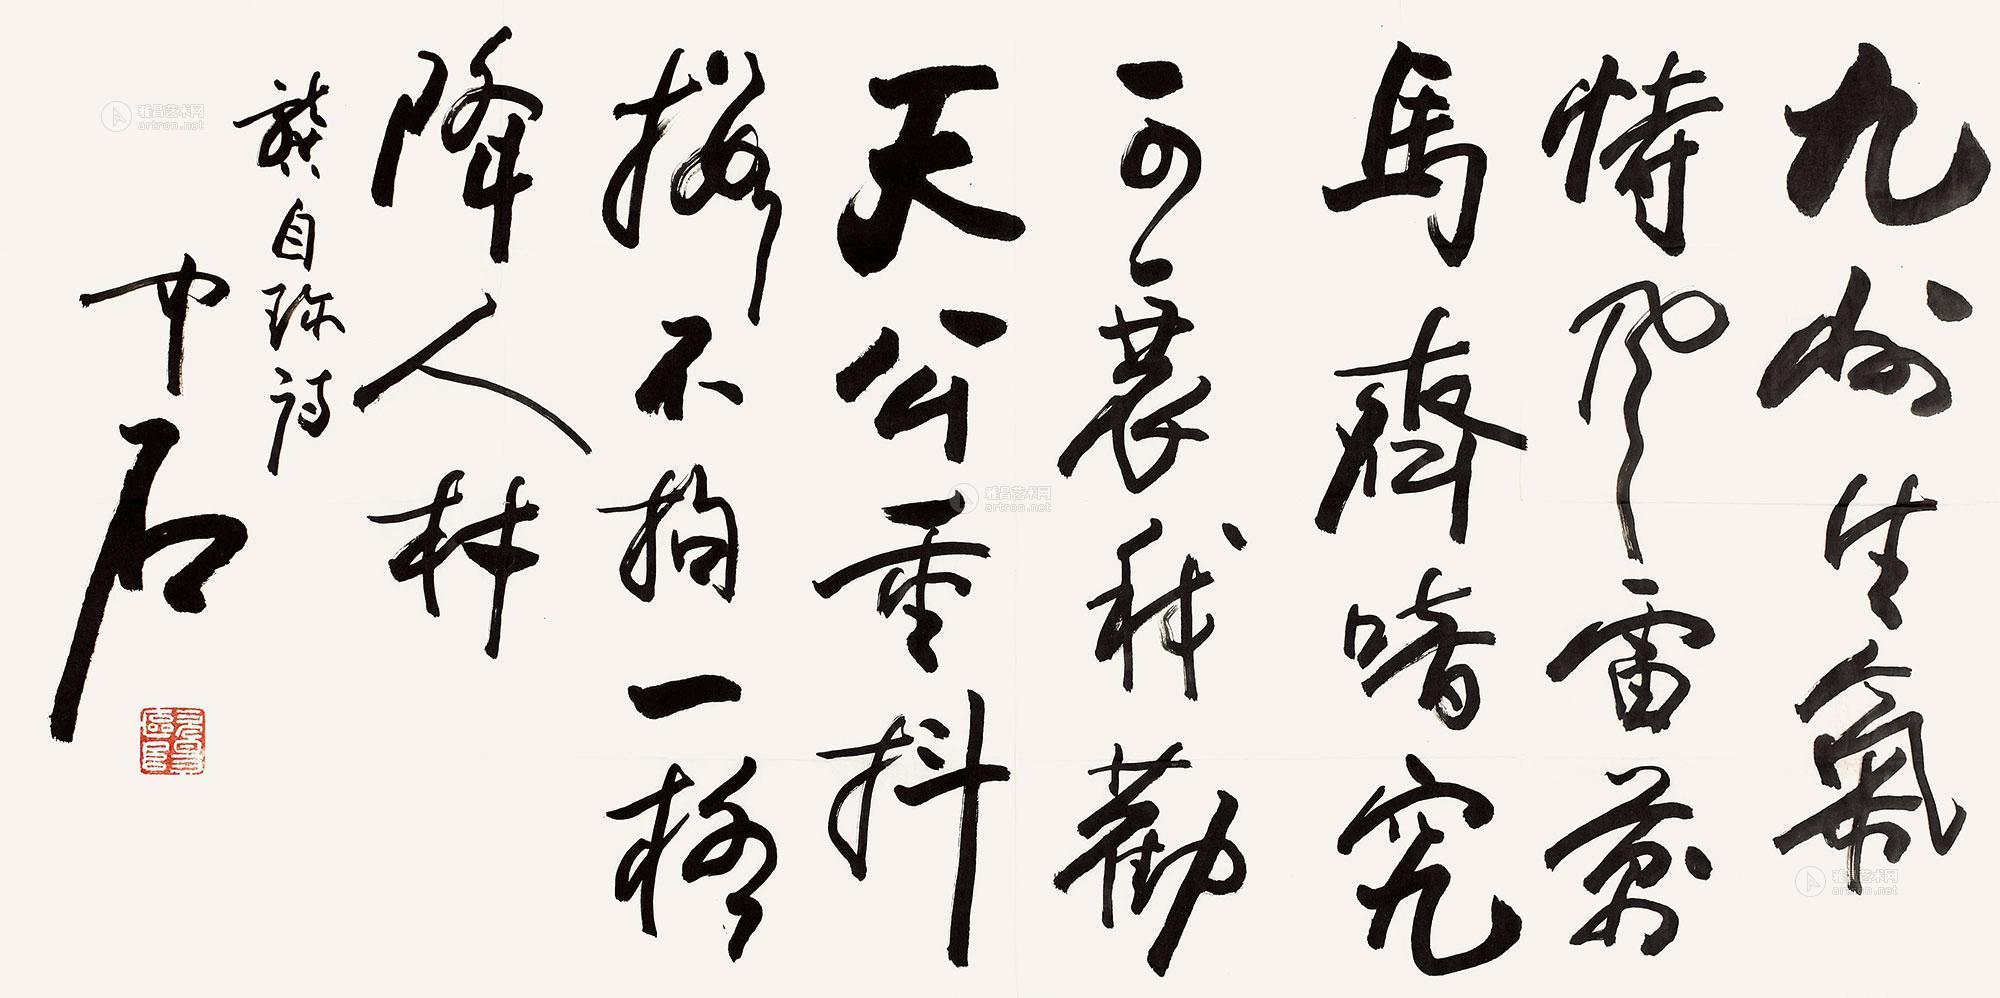 九州生氣
恃風雷萬
馬齊喑究
可哀我勸
天公重抖
擻不拘一格
降人材
龔自珍詩
中石
雅昌艺术网
artron.net
雅昌艺术网
artron.net
雅昌艺术网
artron.net